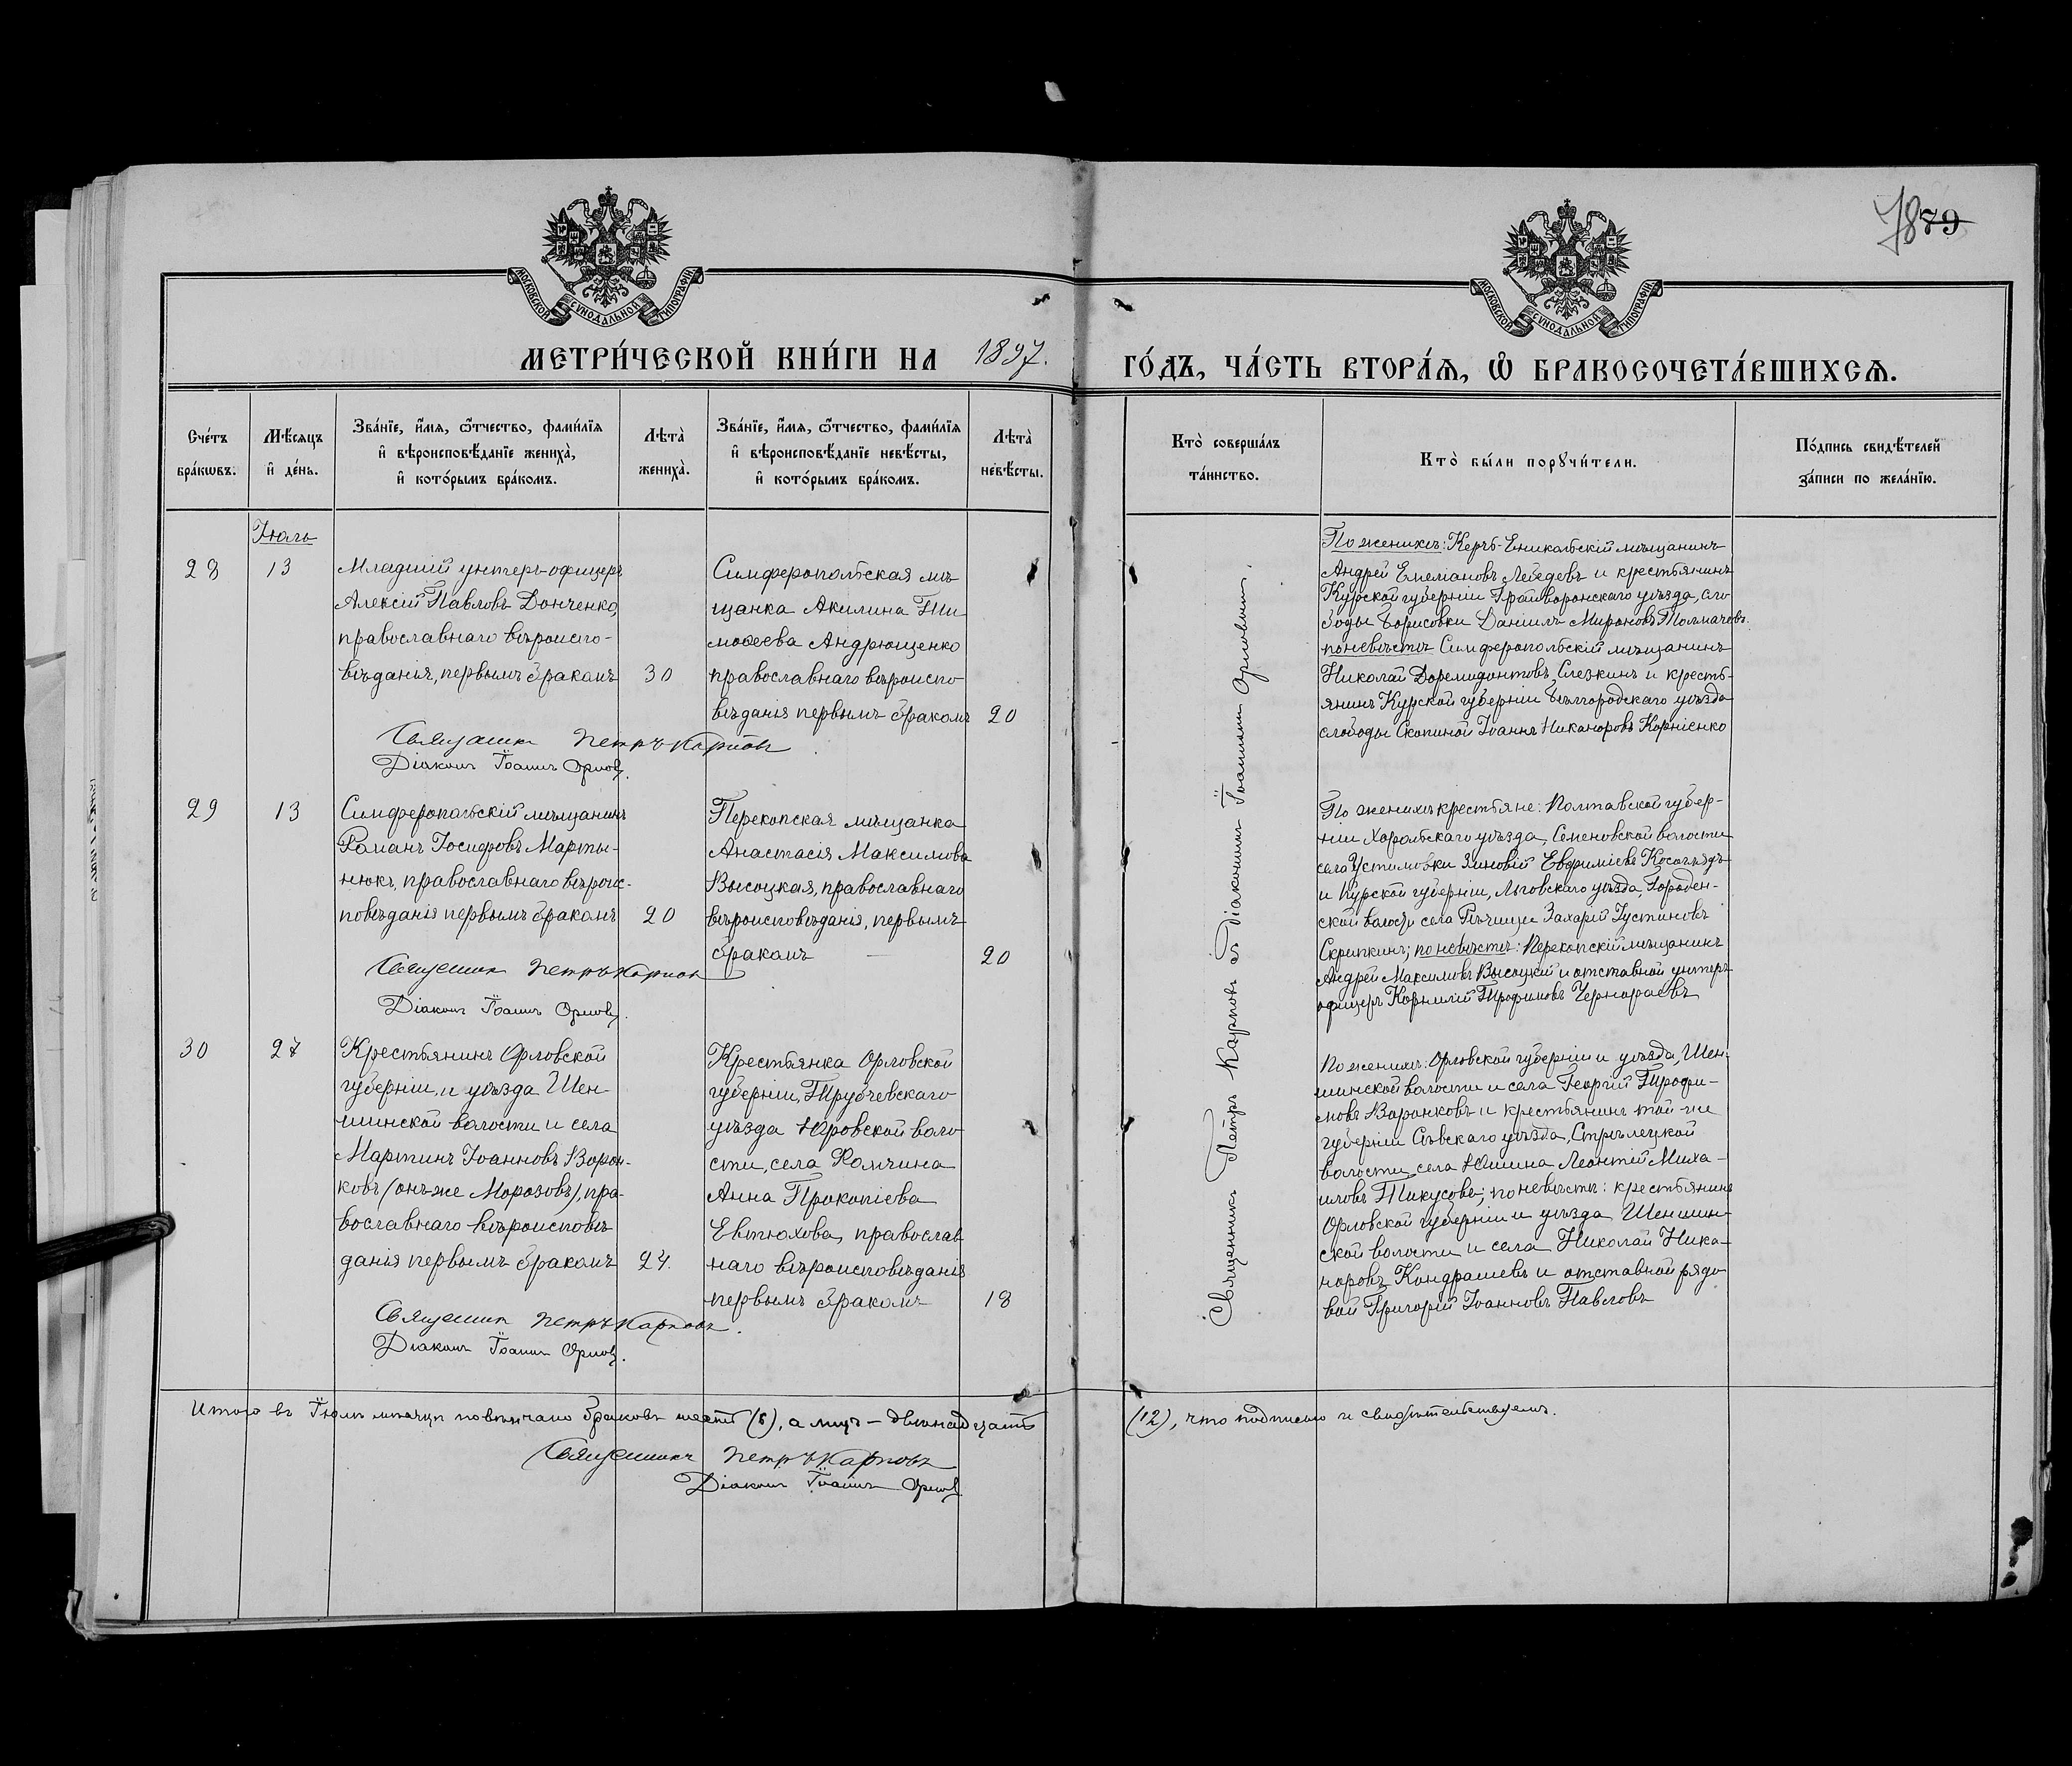 7879
МОСКОВСКОЙ СѴНОДАЛЬНОЙ ТИПОГРАФІИ
МОСКОВСКОЙ СѴНОДАЛЬНОЙ ТИПОГРАФІИ
МЕТРИ́ЧЕСКОЙ КНИ́ГИ НА 1897. ГО́ДЪ, ЧА́СТЬ ВТОРА́Ѧ, Ѽ БРАКОСОЧЕТА́ВШИХСѦ.
Сче́тъ
бра́кѡвъ.
Мѣ́сяцъ
и҆ де́нь.
Зва́нїе, и҆́мѧ, ѻ҆́тчество, фами́лїѧ
и҆ вѣроисповѣ́данїе женихà,
и҆ кото́рымъ бра́комъ.
Лѣтà
женихà.
Зва́нїе, и҆́мѧ, ѻ҆́тчество, фами́лїѧ
и҆ вѣроисповѣ́данїе невѣ́сты,
и҆ кото́рымъ бра́комъ.
Лѣтà
невѣ́сты.
Ктò соверша́лъ
та́инство.
Ктò бы́ли порꙋчи́тели.
По́дпись свидѣ́телей
за́писи по жела́нїю.
Іюль
28
13
Младшій унтеръ-офицеръ
Алексій Павловъ Донченко,
православнаго вѣроиспо-
вѣданія, первымъ бракомъ
30
Симферопольская мѣ
щанка Акилина Ти
моѳеева Андрющенко
православнаго вѣроиспо
вѣданія первымъ бракомъ
20
Священникъ Петръ Карповъ
Діаконъ Іоаннъ Орловъ.
По женихѣ: Керчь-Еникальскій мѣщанинъ
Андрей Емеліановъ Лебедевъ и крестьянинъ
Курской губерніи Грайворонскаго уѣзда, сло
боды Борисовки Даніилъ Мироновъ Толмачевъ.
по невѣстѣ Симферопольскій мѣщанинъ
Николай Доремидонтовъ Слезкинъ и кресть-
янинъ Курской губерніи Бѣлгородскаго уѣзда
слободы Скопиной Іоаннъ Никаноровъ Корніенко
29
13
Симферопольскій мѣщанинъ
Романъ Іосифовъ Марты-
нюкъ, православнаго вѣроис-
повѣданія первымъ бракомъ
20
Перекопская мѣщанка
Анастасія Максимова
Высоцкая, православнаго
вѣроисповѣданія, первымъ
бракомъ
20
Священникъ Петръ Карповъ
Діаконъ Іоаннъ Орловъ.
По женихѣ крестьяне: Полтавской губер-
ніи Хорольскаго уѣзда, Семеновской волости
села Устимовки Зиновій Евфиміевъ Косоглядъ
и Курской губерніи, Льговскаго уѣзда, Городен-
ской волости села Рѣчицы Захарій Іустиновъ
Скрипкинъ; по невѣстѣ: Перекопскій мѣщанинъ
Андрей Максимовъ Высоцкій и отставной унтеръ
офицеръ Корнилій Трофимовъ
30
27
Крестьянинъ Орловской
губерніи, и уѣзда Шен
шинской волости и села
Мартинъ Іоанновъ Ворон-
ковъ (онъ-же Морозовъ), пра-
вославнаго вѣроисповѣ
данія первымъ бракомъ
24.
Крестьянка Орловской
губерніи, Трубчевскаго
уѣзда Юровской воло
сти, села Колчина
Анна Прокопіева
Евтюхова, православ
наго вѣроисповѣданія
первымъ бракомъ
18
Священникъ Петръ Карповъ.
Діаконъ Іоаннъ Орловъ.
По женихѣ: Орловской губерніи и уѣзда, Шен-
шинской волости и села Георгій Трофи-
мовъ Воронковъ и крестьянинъ той-же
губерніи Сѣвскаго уѣзда, Стрѣлецкой
волости, села Юшина Леонтій Миха-
иловъ Тикусовъ; по невѣстѣ: крестьянинъ
Орловской губерніи и уѣзда Шеншин-
ской волости и села Николай Ника-
норовъ Кондрашевъ и отставной рядо
вой Григорій Іоанновъ Павловъ
Священникъ Петръ Карповъ съ Діакономъ Іоанномъ Орловымъ.
Итого въ Іюлѣ мѣсяцѣ повѣнчано браковъ шесть (6), а лицъ – двѣнадцать (12), что подписью и свидѣтельствуемъ.
Священникъ Петръ Карповъ
Діаконъ Іоаннъ Орловъ